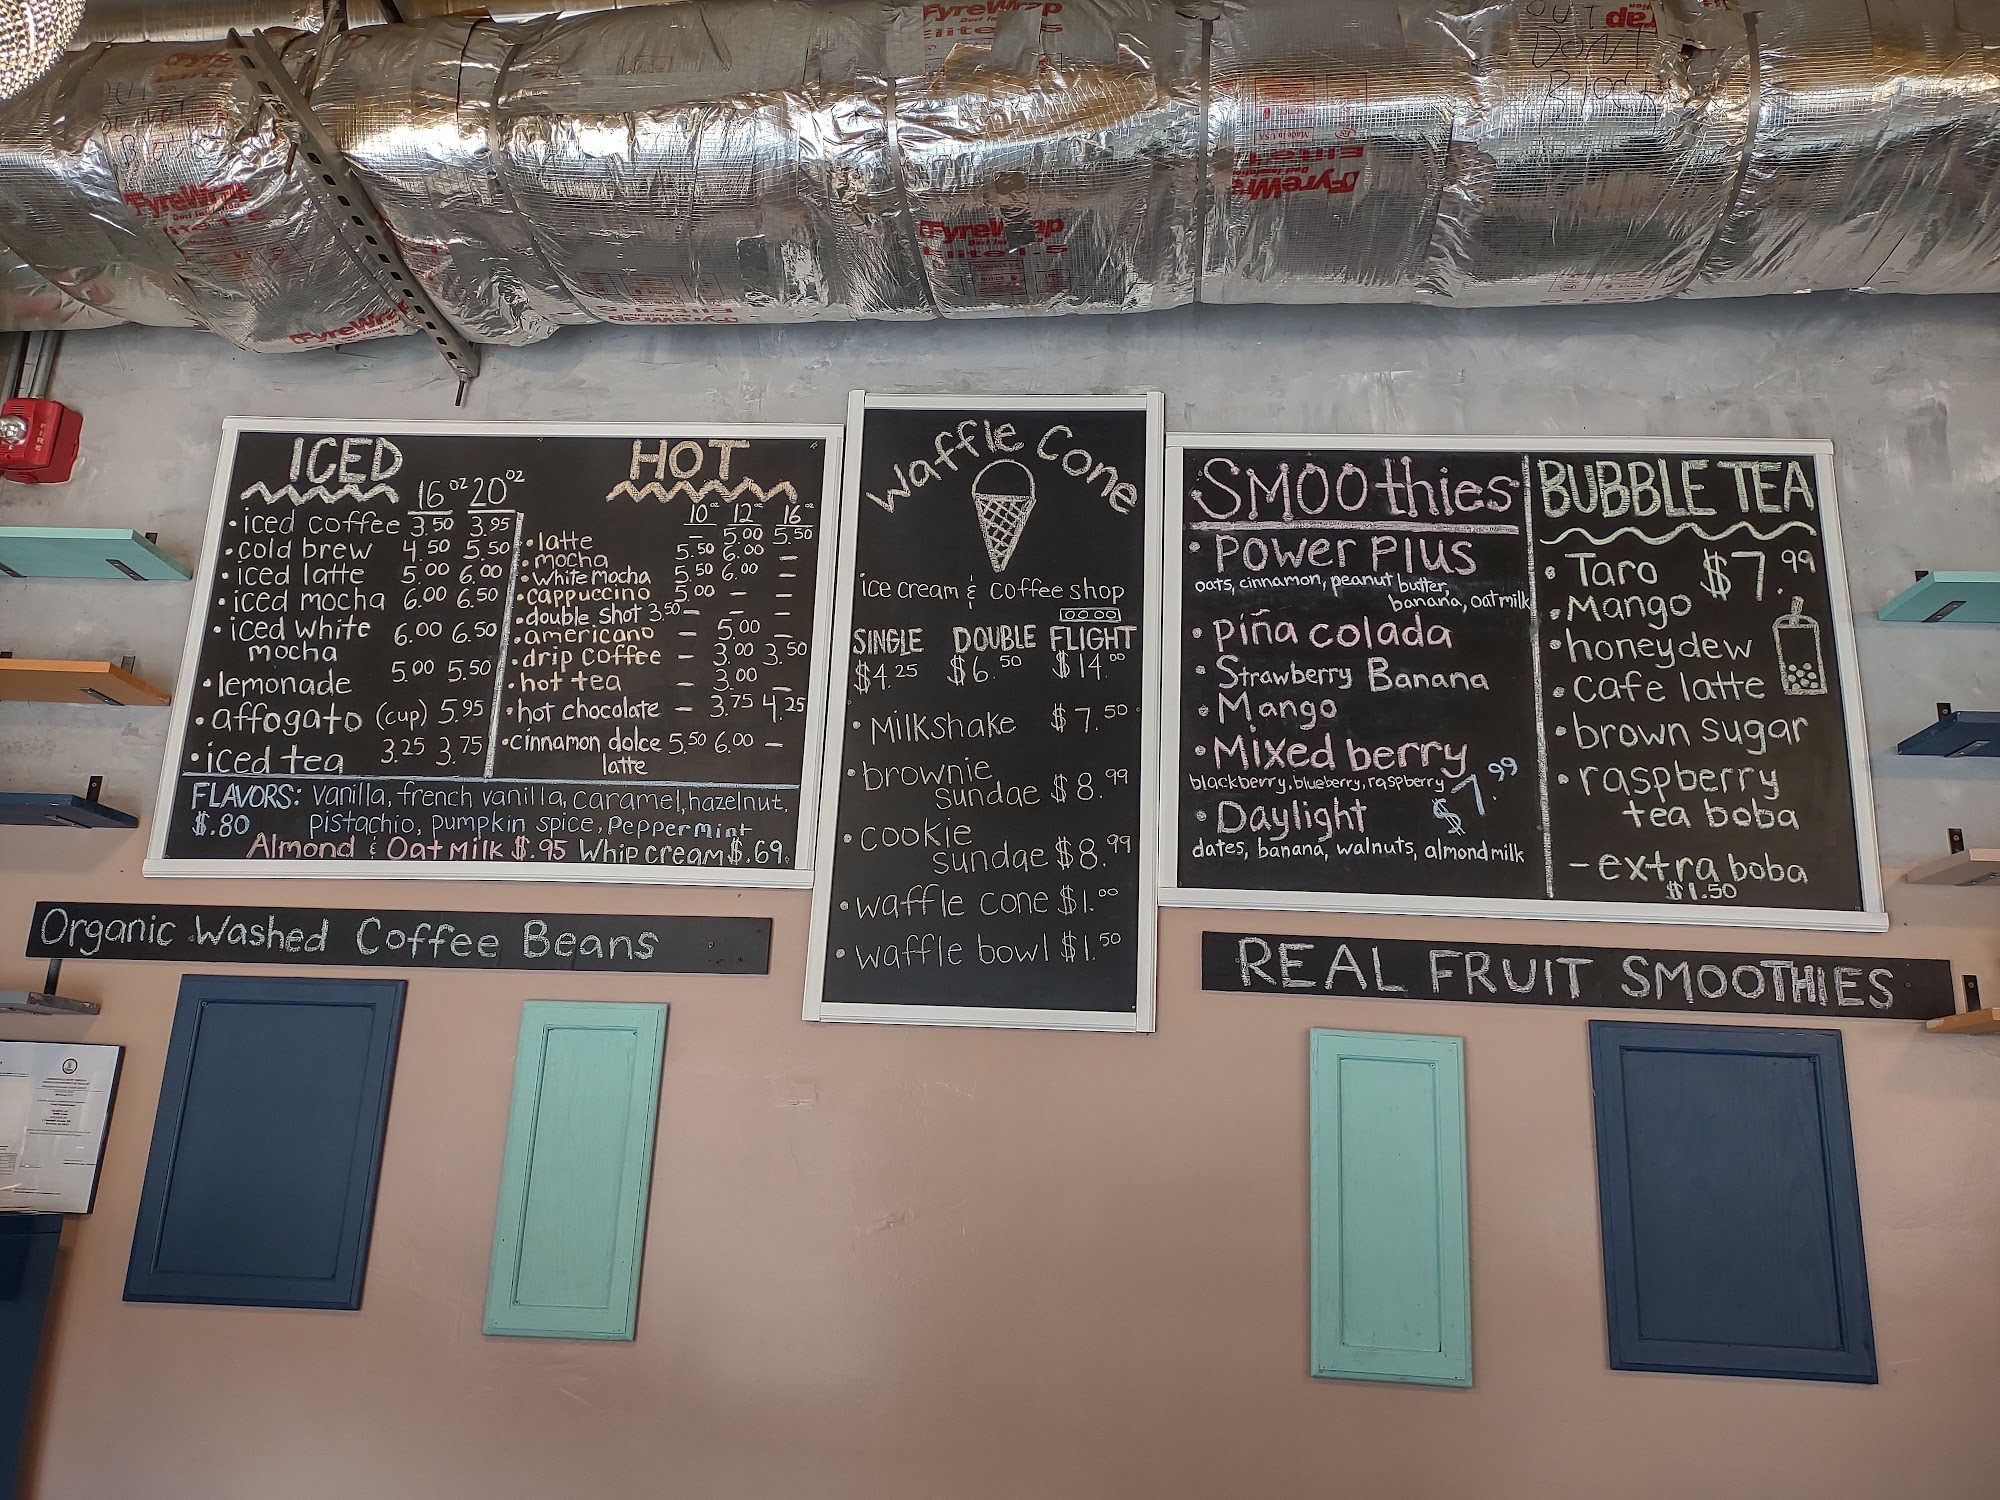 FyreWrap
Duct Insulation
Elite 1.5
OUT
Don't
Block
FyreWrap
Duct Insulation
Elite 1.5
FyreWrap
FyreWrap
Duct Insulation
Elite 1.5
FyreWrap
Elite 1.5
Made in U.S.A.
FIRE
ICED
16 oz 20 oz
• iced coffee 3.50 3.95
• cold brew 4.50 5.50
• iced latte 5.00 6.00
• iced mocha 6.00 6.50
• iced white
mocha 6.00 6.50
• lemonade 5.00 5.50
• affogato (cup) 5.95
• iced tea 3.25 3.75
HOT
10 oz 12 oz 16 oz
• latte – 5.00 5.50
• mocha 5.50 6.00 –
• white mocha 5.50 6.00 –
• cappuccino 5.00 – –
• double shot 3.50 – – –
• americano – 5.00 –
• drip coffee – 3.00 3.50
• hot tea – 3.00 –
• hot chocolate – 3.75 4.25
• cinnamon dolce 5.50 6.00 –
latte
FLAVORS: vanilla, french vanilla, caramel, hazelnut,
$.80 pistachio, pumpkin spice, peppermint
Almond & Oat milk $.95 Whip cream $.69
Organic Washed Coffee Beans
Waffle Cone
ice cream & coffee shop
SINGLE DOUBLE FLIGHT
$4.25 $6.50 $14.00
• Milkshake $7.50
• brownie
sundae $8.99
• cookie
sundae $8.99
• waffle cone $1.00
• waffle bowl $1.50
SMOOthies
• Power Plus
oats, cinnamon, peanut butter,
banana, oat milk
• piña colada
• Strawberry Banana
• Mango
• Mixed berry
blackberry, blueberry, raspberry
$7.99
• Daylight
dates, banana, walnuts, almond milk
BUBBLE TEA
• Taro $7.99
• Mango
• honeydew
• cafe latte
• brown sugar
• raspberry
tea boba
– extra boba
$1.50
REAL FRUIT SMOOTHIES